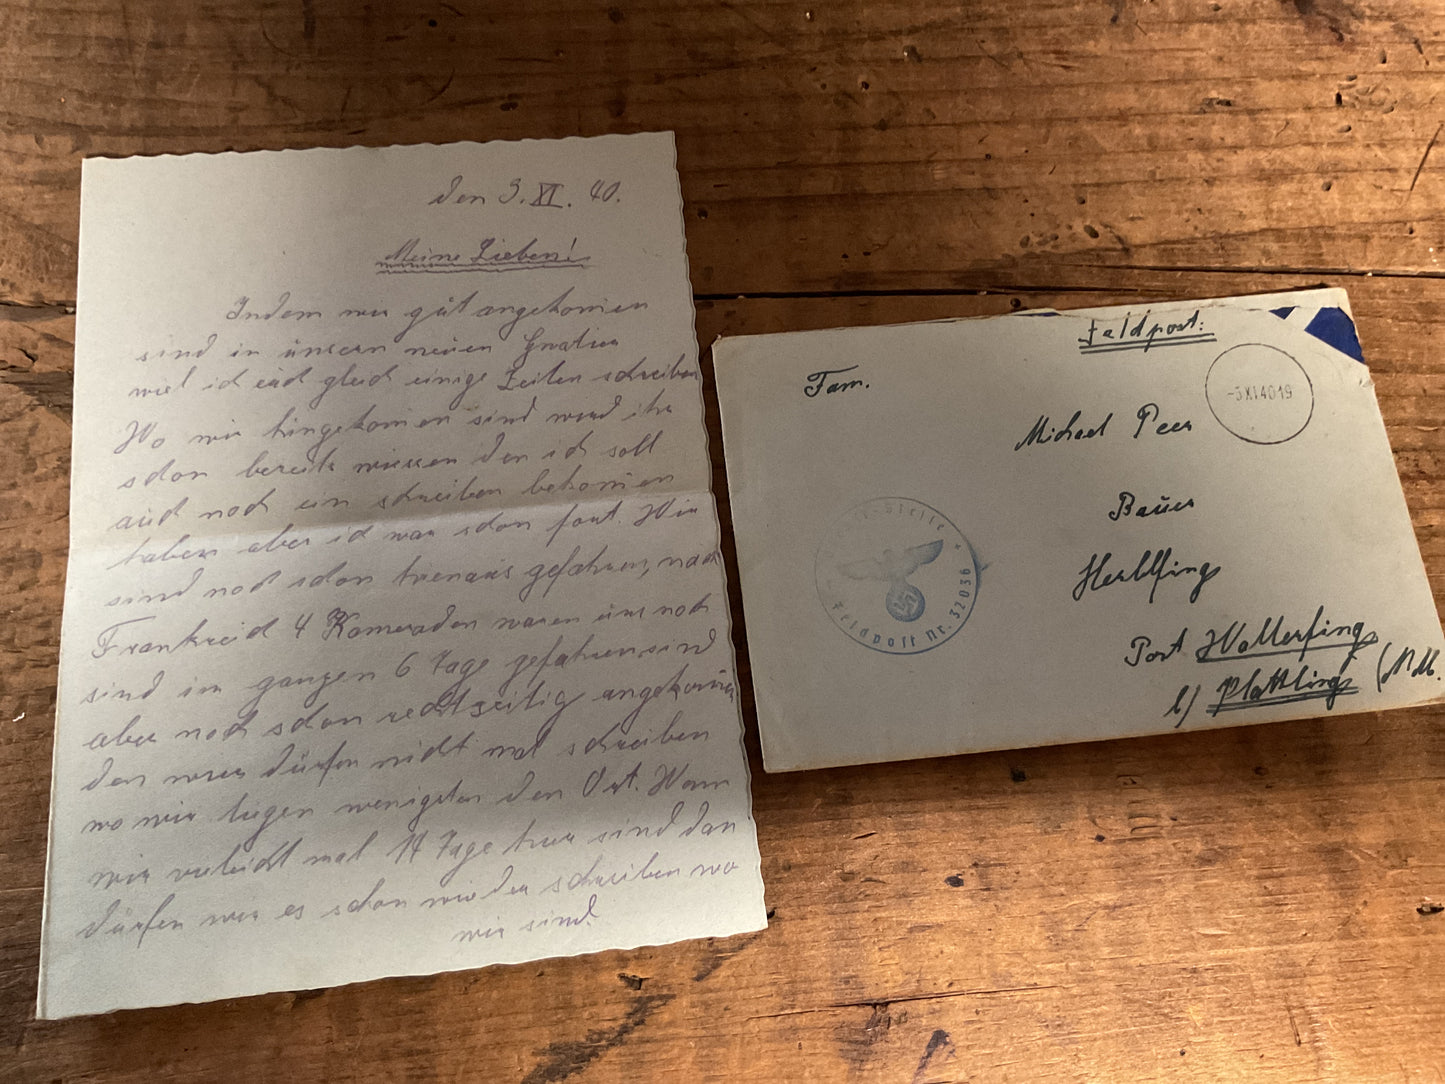 den 3. XI. 40.
Meine Lieben!
Indem wir gut angekomen
sind in unsern neuen
will ich euch gleich einige Zeilen schreiben
Wo wir hingekomen sind werd ihr
schon bereits wiessen den ich soll
auch noch ein schreiben bekomen
haben aber ich war schon fort. Wir
sind noch schon gefahren, nach
Frankreich 4 Kameraden waren uns noch
sind im ganzen 6 Tage gefahren sind
aber noch schon rechtzeitig angekomen
den wier dürfen nicht mal schreiben
wo wir liegen wenigsten den Ort. Wan
wir vieleicht mal 14 Tage hier sind dan
dürfen wier es schon wieder schreiben wo
wir sind.
Feldpost:
-3.XI.40 19
Fam.
Michael Peer
Bauer
Post Wallerfing
b/ Plattling (N.B.
Feldpost Nr. 32036